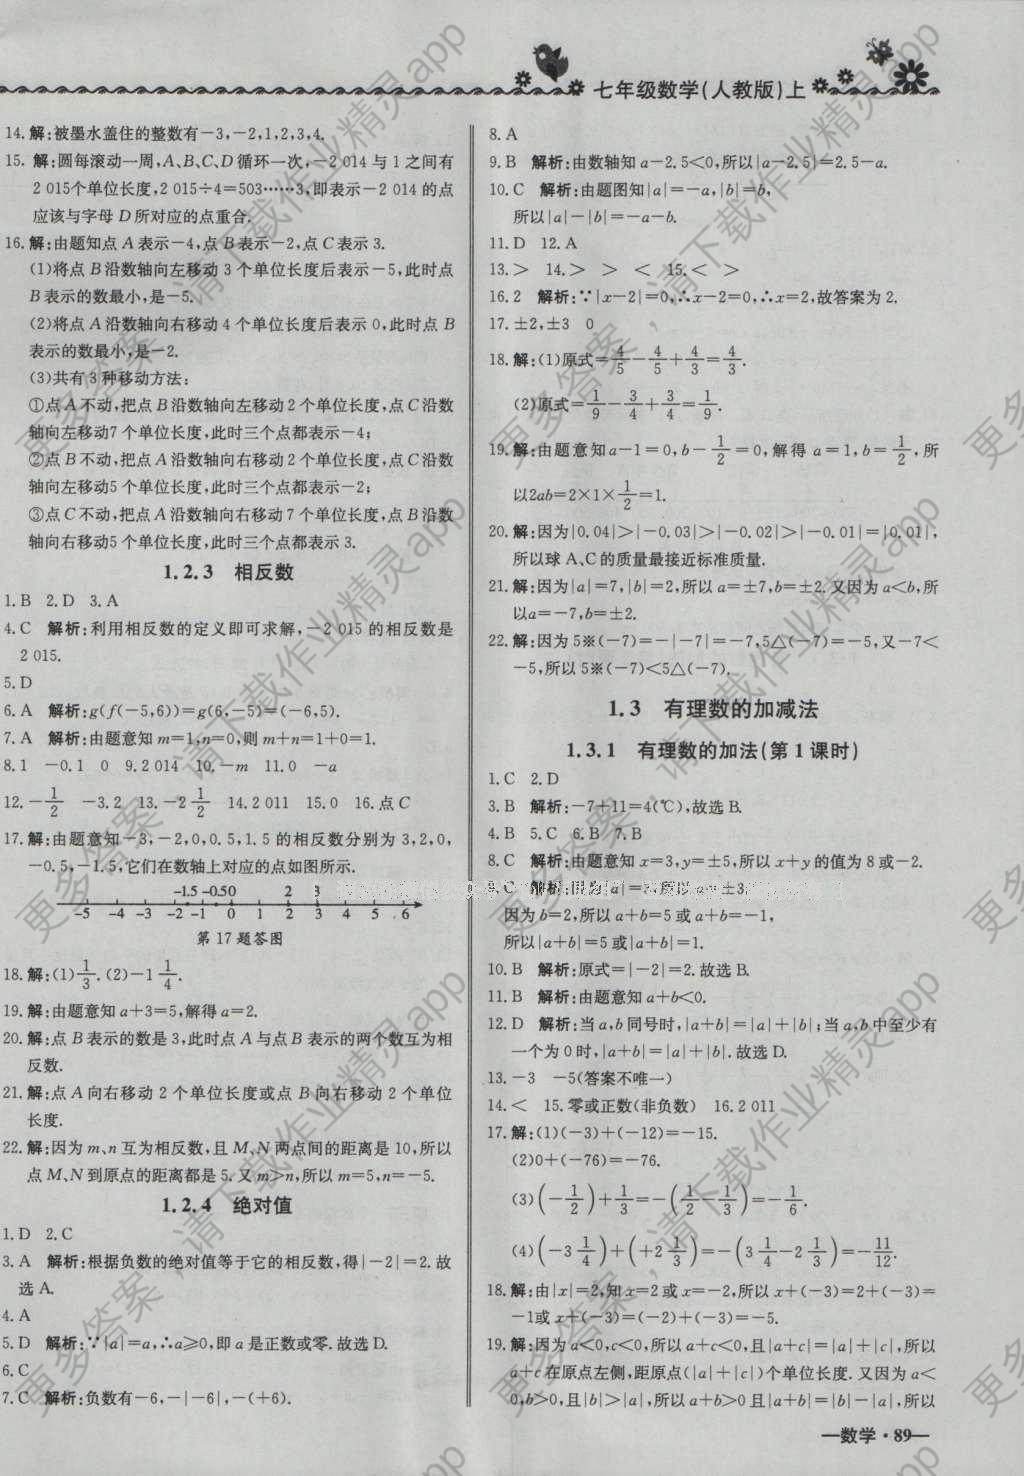 七年级数学(人教版)上
14.解:被墨水盖住的整数有-3,-2,1,2,3,4.
15.解:圆每滚动一周,A、B、C、D循环一次,-2 014与1之间有
2 015个单位长度,2 015÷4=503……3,即表示-2 014的点
应该与字母D所对应的点重合.
16.解:由题知点A表示-4,点B表示-2,点C表示3.
(1)将点B沿数轴向左移动3个单位长度后表示-5,此时点
B表示的数最小,是-5.
(2)将点A沿数轴向右移动4个单位长度后表示0,此时点B
表示的数最小,是-2.
(3)共有3种移动方法:
①点A不动,把点B沿数轴向左移动2个单位长度,点C沿数
轴向左移动7个单位长度,此时三个点都表示-4;
②点B不动,把点A沿数轴向右移动2个单位长度,点C沿数
轴向左移动5个单位长度,此时三个点都表示-2;
③点C不动,把点A沿数轴向右移动7个单位长度,点B沿数
轴向右移动5个单位长度,此时三个点都表示3.
1.2.3 相反数
1.B 2.D 3.A
4.C 解析:利用相反数的定义即可求解,-2 015的相反数是
2 015.
5.D
6.A 解析:g(f(-5,6))=g(6,-5)=(-6,5).
7.A 解析:由题意知m=1,n=0,则m+n=1+0=1.
8.1 -0.1 0 9.2 014 10.-m 11.0 -a
12.-1/2 -3.2 13.-2 1/2 14.2 011 15.0 16.点C
17.解:由题意知-3,-2,0,0.5,1.5的相反数分别为3,2,0,
-0.5,-1.5,它们在数轴上对应的点如图所示.
-1.5 -0.50 2 3
-5 -4 -3 -2 -1 0 1 2 3 4 5 6
第17题答图
18.解:(1)1/3.(2)-1 1/4.
19.解:由题意知a+3=5,解得a=2.
20.解:点B表示的数是3,此时点A与点B表示的两个数互为相
反数.
21.解:点A向右移动2个单位长度或点B向右移动2个单位
长度.
22.解:因为m、n互为相反数,且M、N两点间的距离是10,所以
点M、N到原点的距离都是5.又m>n,所以m=5,n=-5.
1.2.4 绝对值
1.D 2.C
3.A 解析:根据负数的绝对值等于它的相反数,得|-2|=2.故
选A.
4.A
5.D 解析:∵|a|=a,∴a≥0,即a是正数或零.故选D.
6.C
7.C 解析:负数有-6,-|-6|,-(+6).
8.A
9.B 解析:由数轴知a-2.5<0,所以|a-2.5|=2.5-a.
10.C 解析:由题图知|a|=-a,|b|=b,
所以|a|-|b|=-a-b.
11.D 12.A
13.> 14.> > < 15.< >
16.2 解析:∵|x-2|=0,∴x-2=0,∴x=2,故答案为2.
17.±2,±3 0
18.解:(1)原式=4/5-4/5+4/3=4/3.
(2)原式=1/9-3/4+3/4=1/9.
19.解:由题意知a-1=0,b-1/2=0,解得a=1,b=1/2,所
以2ab=2×1×1/2=1.
20.解:因为|0.04|>|-0.03|>|-0.02|>|-0.01|=|0.01|,
所以球A、C的质量最接近标准质量.
21.解:因为|a|=7,|b|=2,所以a=±7,b=±2.又因为a<b,所
以a=-7,b=±2.
22.解:因为5※(-7)=-|-7|=-7,5△(-7)=-5,又-7<
-5,所以5※(-7)<5△(-7).
1.3 有理数的加减法
1.3.1 有理数的加法(第1课时)
1.C 2.D
3.B 解析:-7+11=4(℃),故选B.
4.B 5.C 6.B 7.B
8.C 解析:由题意知x=3,y=±5,所以x+y的值为8或-2.
9.C 解析:因为|a|=3,所以a=±3.
因为b=2,所以a+b=5或a+b=-1,
所以|a+b|=5或|a+b|=1.
10.B 解析:原式=|-2|=2.故选B.
11.B 解析:由题意知a+b<0.
12.D 解析:当a,b同号时,|a+b|=|a|+|b|;当a,b中至少有
一个为0时,|a+b|=|a|+|b|.故选D.
13.-3 -5(答案不唯一)
14.< 15.零或正数(非负数) 16.2 011
17.解:(1)(-3)+(-12)=-15.
(2)0+(-76)=-76.
(3)(-1/2)+1/3=-(1/2-1/3)=-1/6.
(4)(-3 1/4)+(+2 1/3)=-(3 1/4-2 1/3)=-11/12.
18.解:由|x|=2,知x=2或x=-2,所以x+(-3)=2+(-3)=
-1或x+(-3)=(-2)+(-3)=-5.
19.解:因为a<0,c<0,所以a+c<0,且|a+c|=|a|+|c|,所以
a+c在原点左侧,距原点(|a|+|c|)个单位长度.又因为a<
0,b>0,且|b|>|a|,所以a+b>0且|a+b|=|b|-|a|,所以
—数学·89—
更多答案,请下载作业精灵app
更多答案,请下载作业精灵app
更多答案,请下载作业精灵app
更多答案,请下载作业精灵app
更多答案,请下载作业精灵app
更多答案,请下载作业精灵app
更多答案
更多答案
更多答案